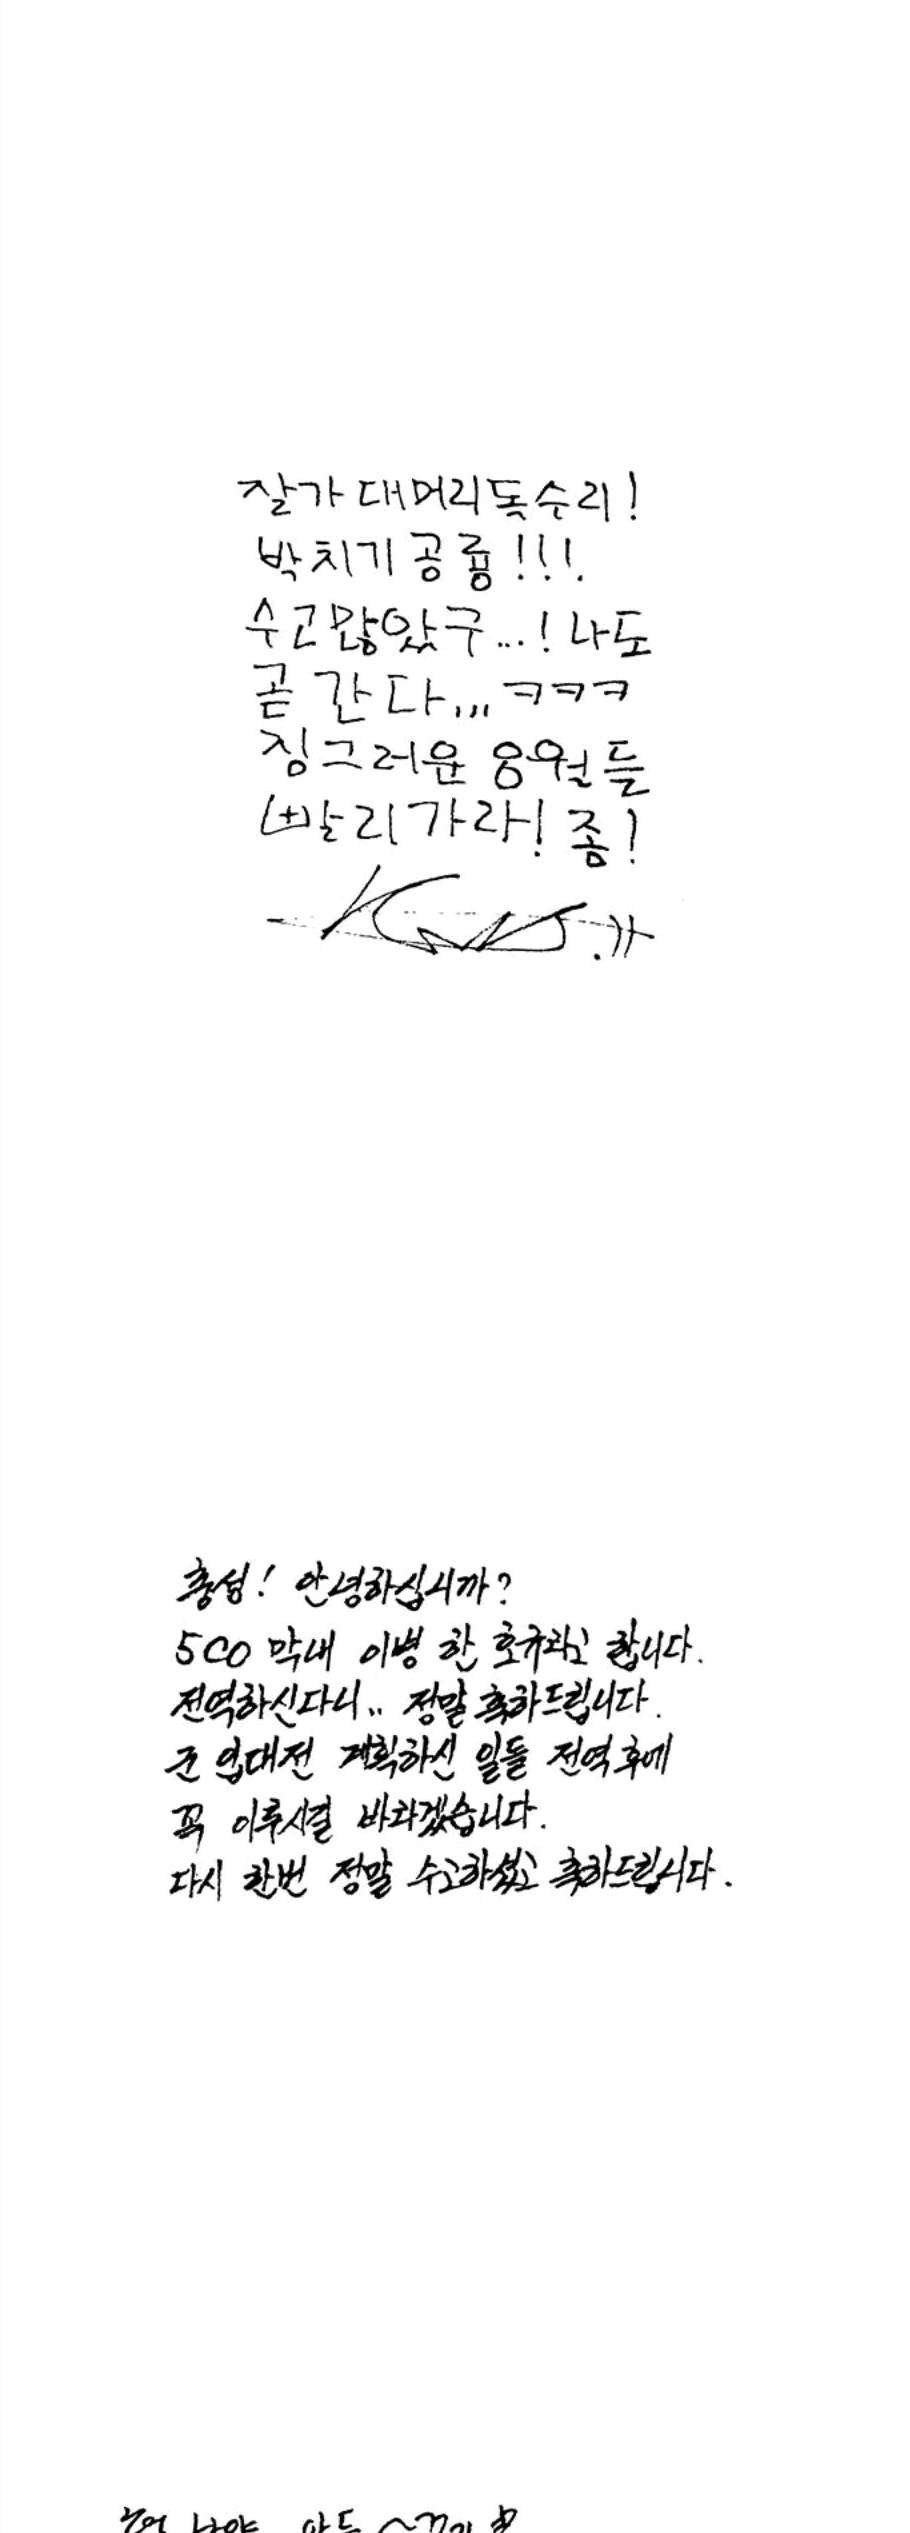 잘가 대머리독수리!
박치기공룡!!!
수고많았구...! 나도
곧 간다,,, ㅋㅋㅋ
징그러운 웅월들
빨리가라! 좀!
충성! 안녕하십니까?
5CO 막내 이병 한 호규라고 합니다.
전역하신다니.. 정말 축하드립니다.
군 입대전 계획하신 일들 전역후에
꼭 이루시길 바라겠습니다.
다시 한번 정말 수고하셨고 축하드립니다.